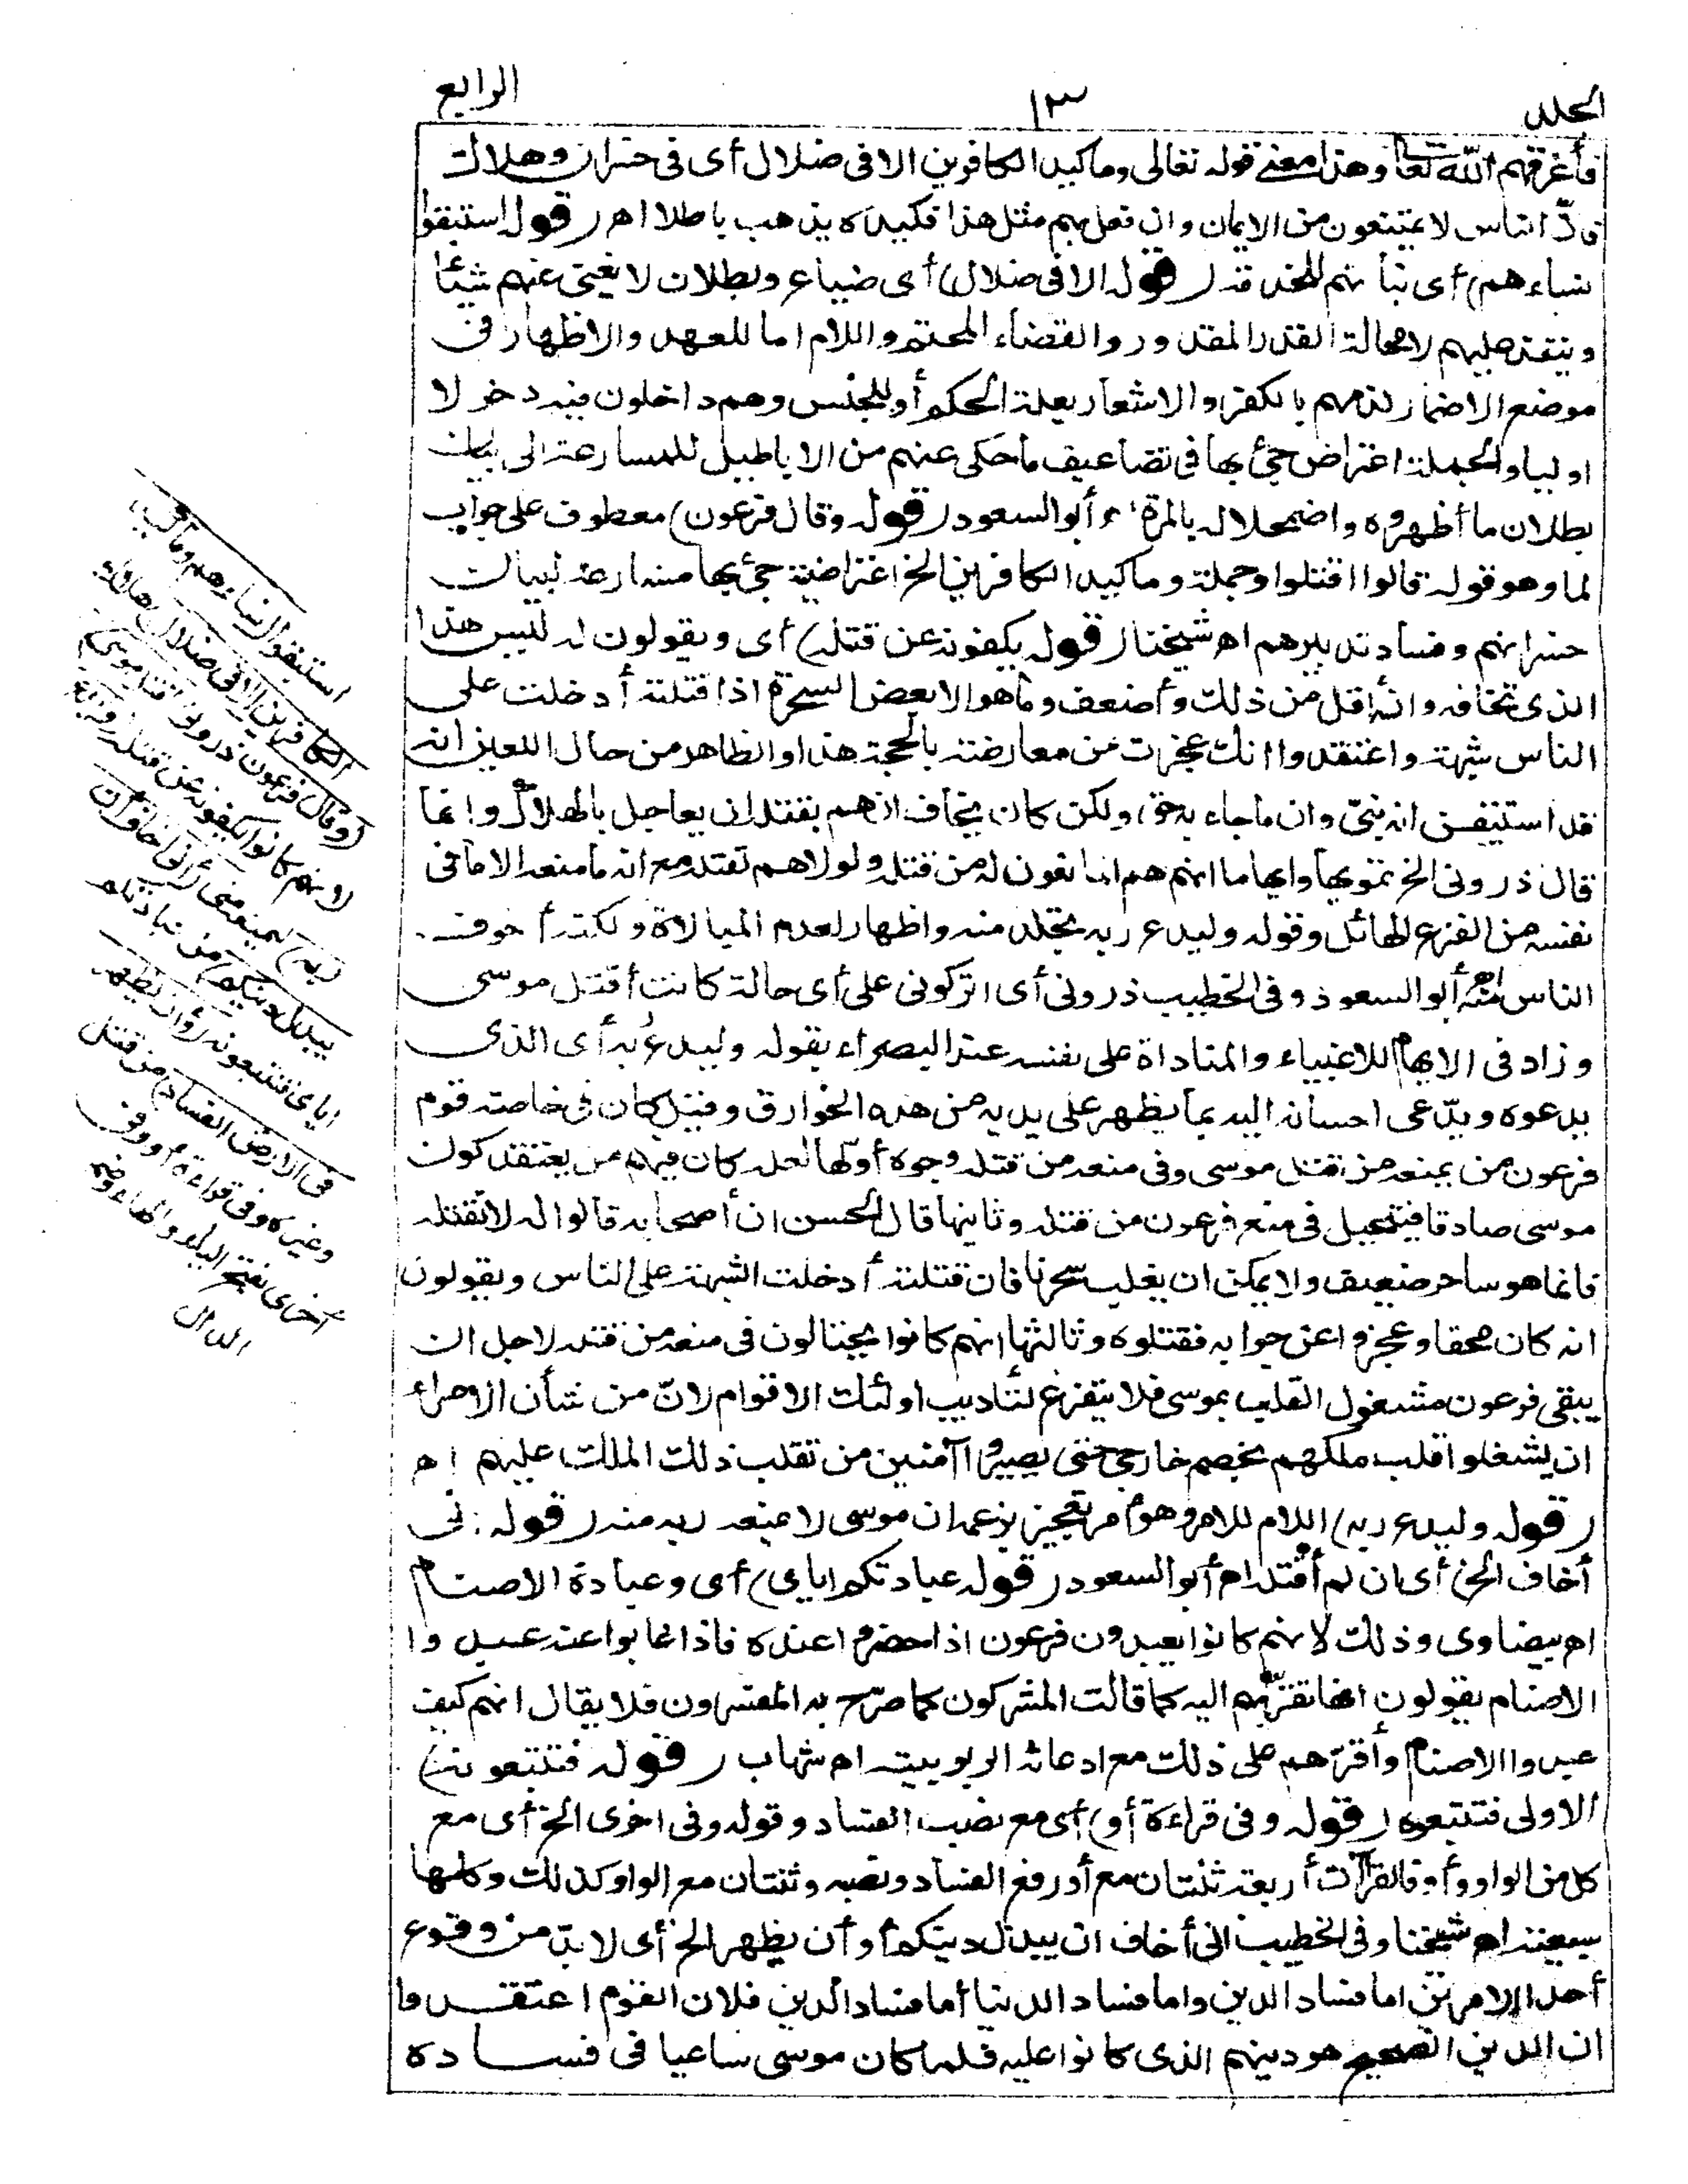 المجلد
١٣
الرابع
فأغرقهم الله تعا وهذا معنى قوله تعالى وما كيد الكافرين الا فى ضلال أى فى خسران وهلاك
لانّ الناس لا يمتنعون من الايمان وان فعل بهم مثل هذا فكيده يذهب باطلا اهـ (قوله استبقوا
نساءهم) أى بناتهم للخدمة (قوله الا فى ضلال) أى ضياع وبطلان لا يغنى عنهم شيئا
وينفذ عليهم لا محالة القدر المقدور والقضاء المحتم واللام اما للعهد والاظهار فى
موضع الاضمار لذمهم بالكفر والاشعار بعلة الحكم أو للجنس وهم داخلون فيه دخولا
اوليا والجملة اعتراض جئ بها فى تضاعيف ما حكى عنهم من الاباطيل للمسارعة الى بيان
بطلان ما أظهروه واضمحلاله بالمرة اهـ أبو السعود (قوله وقال فرعون) معطوف على جواب
لما وهو قوله قالوا اقتلوا وجملة وما كيد الكافرين الخ اعتراضية جئ بها مسارعة لبيان
خسرانهم وفساد تدبيرهم اهـ شيخنا (قوله يكفونه عن قتله) أى ويقولون له ليس هذا
الذى تخافه وانه أقل من ذلك وأضعف وما هو الا بعض السحرة اذا قتلته أدخلت على
الناس شبهة واعتقدوا انك عجزت عن معارضته بالحجة هذا والظاهر من حال اللعين انه
قد استيقن انه نبىّ وان ما جاء به حق ولكن كان يخاف ان هم بقتله ان يعاجل بالهلاك وانما
قال ذرونى الخ تمويها وايهاما انهم هم المانعون له من قتله ولولاهم لقتله مع انه ما منعه الا ما فى
نفسه من الفزع الهائل وقوله وليدع ربه تجلد منه واظهار لعدم المبالاة ولكنه أخوف
الناس منه اهـ أبو السعود وفى الخطيب ذرونى أى اتركونى على أى حالة كانت أقتل موسى
وزاد فى الايهام للاغبياء والمناداة على نفسه عند البصراء بقوله وليدع ربه أى الذى
يدعوه ويدّعى احسانه اليه بما يظهر على يديه من هذه الخوارق وقيل كان فى خاصته قوم
فرعون من يمنعه من قتل موسى وفى منعه من قتله وجوه أوّلها لعله كان فيهم من يعتقد كون
موسى صادقا فيتحيل فى منع فرعون من قتله وثانيها قال الحسن ان أصحابه قالوا له لا تقتله
فانما هو ساحر ضعيف ولا يمكن ان يغلب سحرنا فان قتلته أدخلت الشبهة على الناس ويقولون
انه كان محقا وعجزوا عن جوابه فقتلوه وثالثها انهم كانوا يحتالون فى منعه من قتله لاجل ان
يبقى فرعون مشغول القلب بموسى فلا يتفرغ لتأديب اولئك الاقوام لانّ من شأن الامراء
ان يشغلوا قلب ملكهم بخصم خارجى حتى يصيروا آمنين من تقلب ذلك الملك عليهم اهـ
(قوله وليدع ربه) اللام للامر وهو أمر تعجيز بزعمه ان موسى لا يمنعه ربه منه (قوله انى
أخاف الخ) أى ان لم أقتله اهـ أبو السعود (قوله عبادتكم اياى) أى وعبادة الاصنام
اهـ بيضاوى وذلك لانهم كانوا يعبدون فرعون اذا حضروا عنده فاذا غابوا عنه عبدوا
الاصنام يقولون انها تقرّبهم اليه كما قالت المشركون كما صرّح به المفسرون فلا يقال انهم كيف
عبدوا الاصنام وأقرّهم على ذلك مع ادعائه الربوبية اهـ شهاب (قوله فتتبعونه)
الاولى فتتبعوه (قوله وفى قراءة أو) أى مع نصب الفساد وقوله وفى اخرى الخ أى مع
كل من الواو وأو فالقراآت أربعة ثنتان مع أو رفع الفساد ونصبه وثنتان مع الواو كذلك وكلها
سبعية اهـ شيخنا وفى الخطيب انى أخاف ان يبدل دينكم أو أن يظهر الخ أى لا بدّ من وقوع
أحد الامرين اما فساد الدين واما فساد الدنيا أما فساد الدين فلان القوم اعتقدوا
ان الدين الصحيح هو دينهم الذى كانوا عليه فلما كان موسى ساعيا فى فساده
استبقوا نساءهم وما كيد
الكافرين الا فى ضلال) هلاك
(وقال فرعون ذرونى أقتل موسى)
لانهم كانوا يكفونه عن قتله (وليدع
ربه) ليمنعه منى (انى أخاف أن
يبدل دينكم) من عبادتكم
اياى فتتبعونه (وأن يظهر
فى الارض الفساد) من قتل
وغيره وفى قراءة أو وفى
أخرى بفتح الياء والهاء وضم
الدال